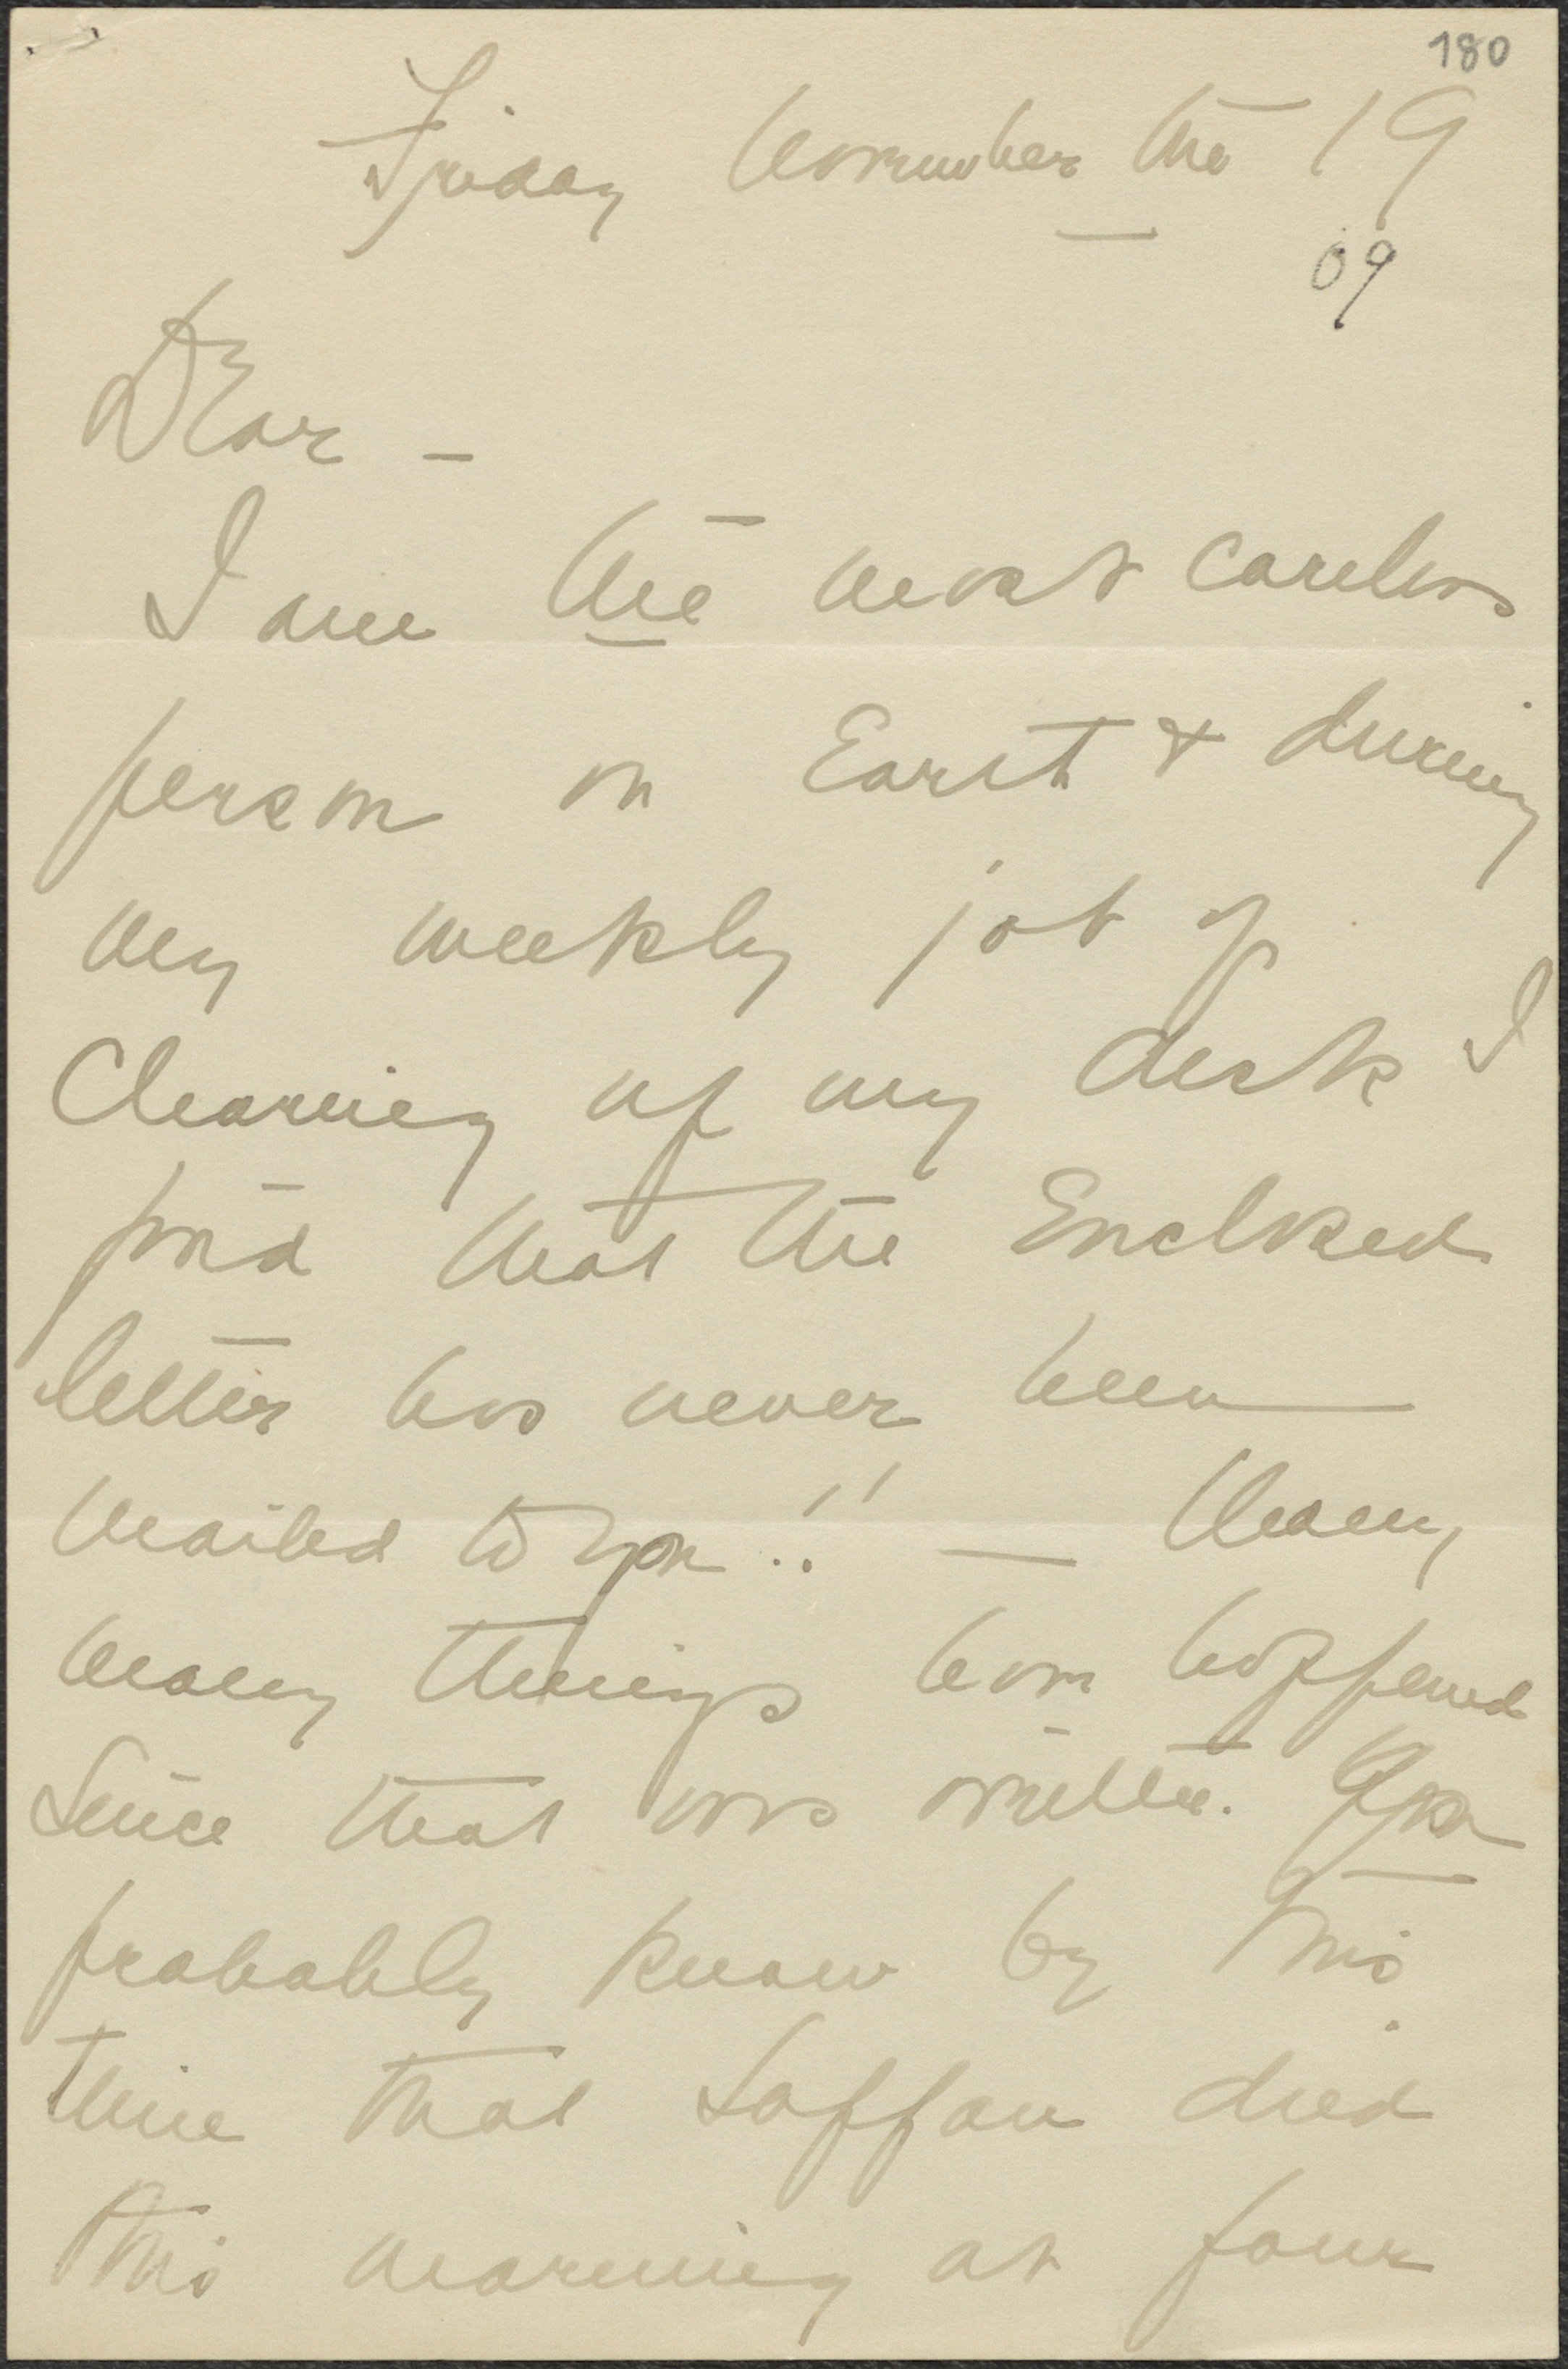 180
Friday November the 19
09
Dear -
I am the most careless
person on Earth & during
my weekly job of
Clearing up my desk I
find that the Enclosed
letter has never been
mailed to you!! — Many
many things have happened
Since that was written. You
probably know by this
time that Laffan died
this morning at four